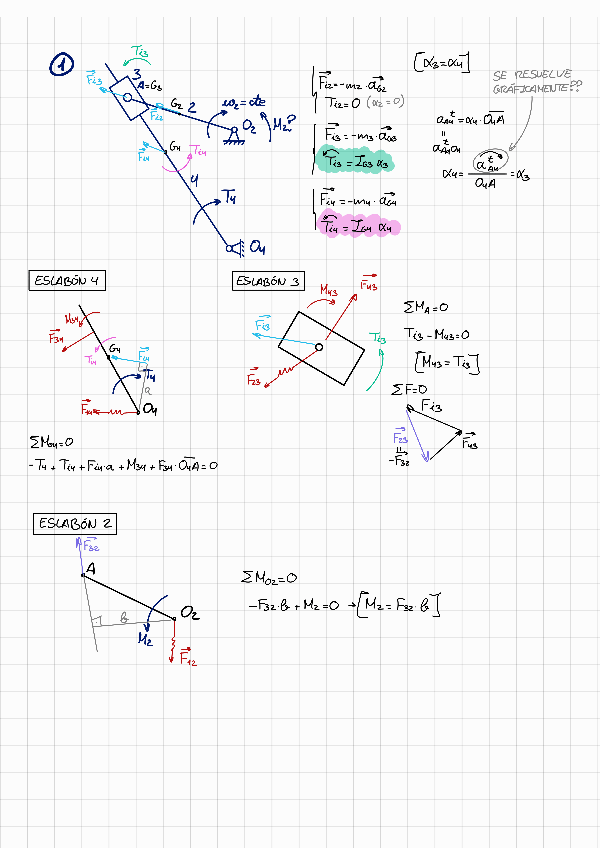 1
Ti3
Fi3
3
A=G3
G2
2
Fi2
ω2=cte
M2?
O2
G4
Fi4
Ti4
4
T4
O4
Fi2=-m2·aG2
Ti2=0 (α2=0)
Fi3=-m3·aG3
Ti3=IG3 α3
Fi4=-m4·aG4
Ti4=IG4 α4
[α3=α4]
SE RESUELVE
GRÁFICAMENTE??
aA4^t=α4·O4A
=
aA4O4^t
α4= aA4^t / O4A =α3
ESLABÓN 4
M34
F34
Ti4
G4
Fi4
T4
a
F14
O4
ΣMO4=0
-T4+Ti4+Fi4·a+M34+F34·O4A=0
ESLABÓN 3
M43
F43
Fi3
Ti3
F23
ΣMA=0
Ti3-M43=0
[M43=Ti3]
ΣF=0
Fi3
F23
=
-F32
F43
ESLABÓN 2
F32
A
b
O2
M2
F12
ΣMO2=0
-F32·b+M2=0 → [M2=F32·b]